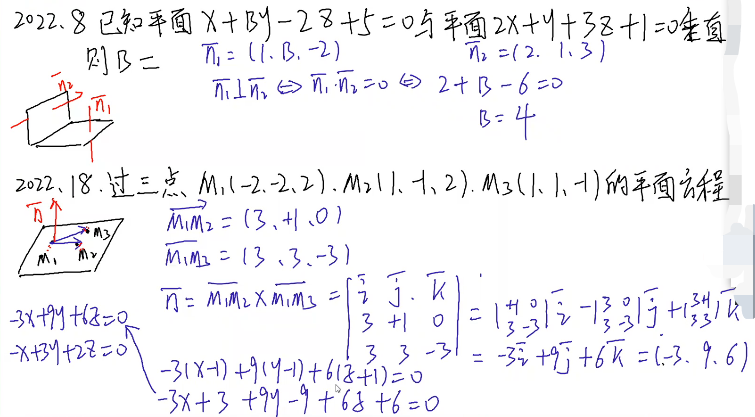 2022.8 已知平面 X+By-2z+5=0与平面2X+y+3z+1=0垂直
则B=
n̅₁=(1.B.-2)
n̅₂=(2. 1. 3)
n̅₁⊥n̅₂ ⇔ n̅₁·n̅₂=0 ⇔ 2+B-6=0
B=4
n̅₂
n̅₁
2022.18.过三点 M₁(-2.-2,2).M₂(1.-1,2).M₃(1.1,-1)的平面方程
n̅
M₁
M₂
M₃
M₁M₂=(3.+1.0)
M₁M₃=(3.3.-3)
n̅=M₁M₂×M₁M₃=|i̅ j̅. k̅|
|3 +1 0|
|3 3 -3|
=|+1 0|i̅-|3 0|j̅+|3 +1|k̅
|3 -3| |3 -3| |3 3|
=-3i̅+9j̅+6k̅=(-3.9.6)
-3x+9y+6z=0
-x+3y+2z=0
-3(x-1)+9(y-1)+6(z+1)=0
-3x+3+9y-9+6z+6=0